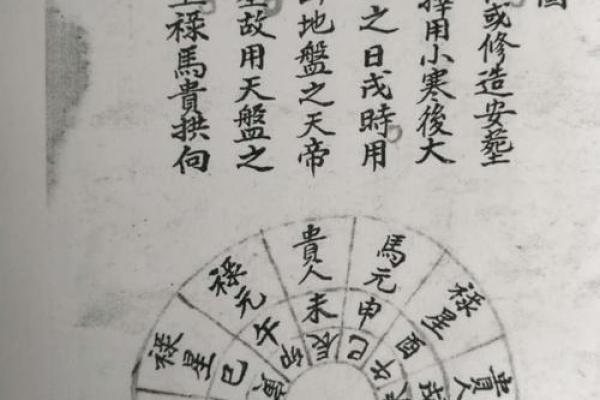 或修造安塟
擇用小寒後大
之日戌時用
地盤之天帝
故用天盤之
祿馬貴拱向
祿星
祿元
貴人
馬元
祿星
貴人
巳
午
未
申
酉
戌
寅
卯
辰
巳
午